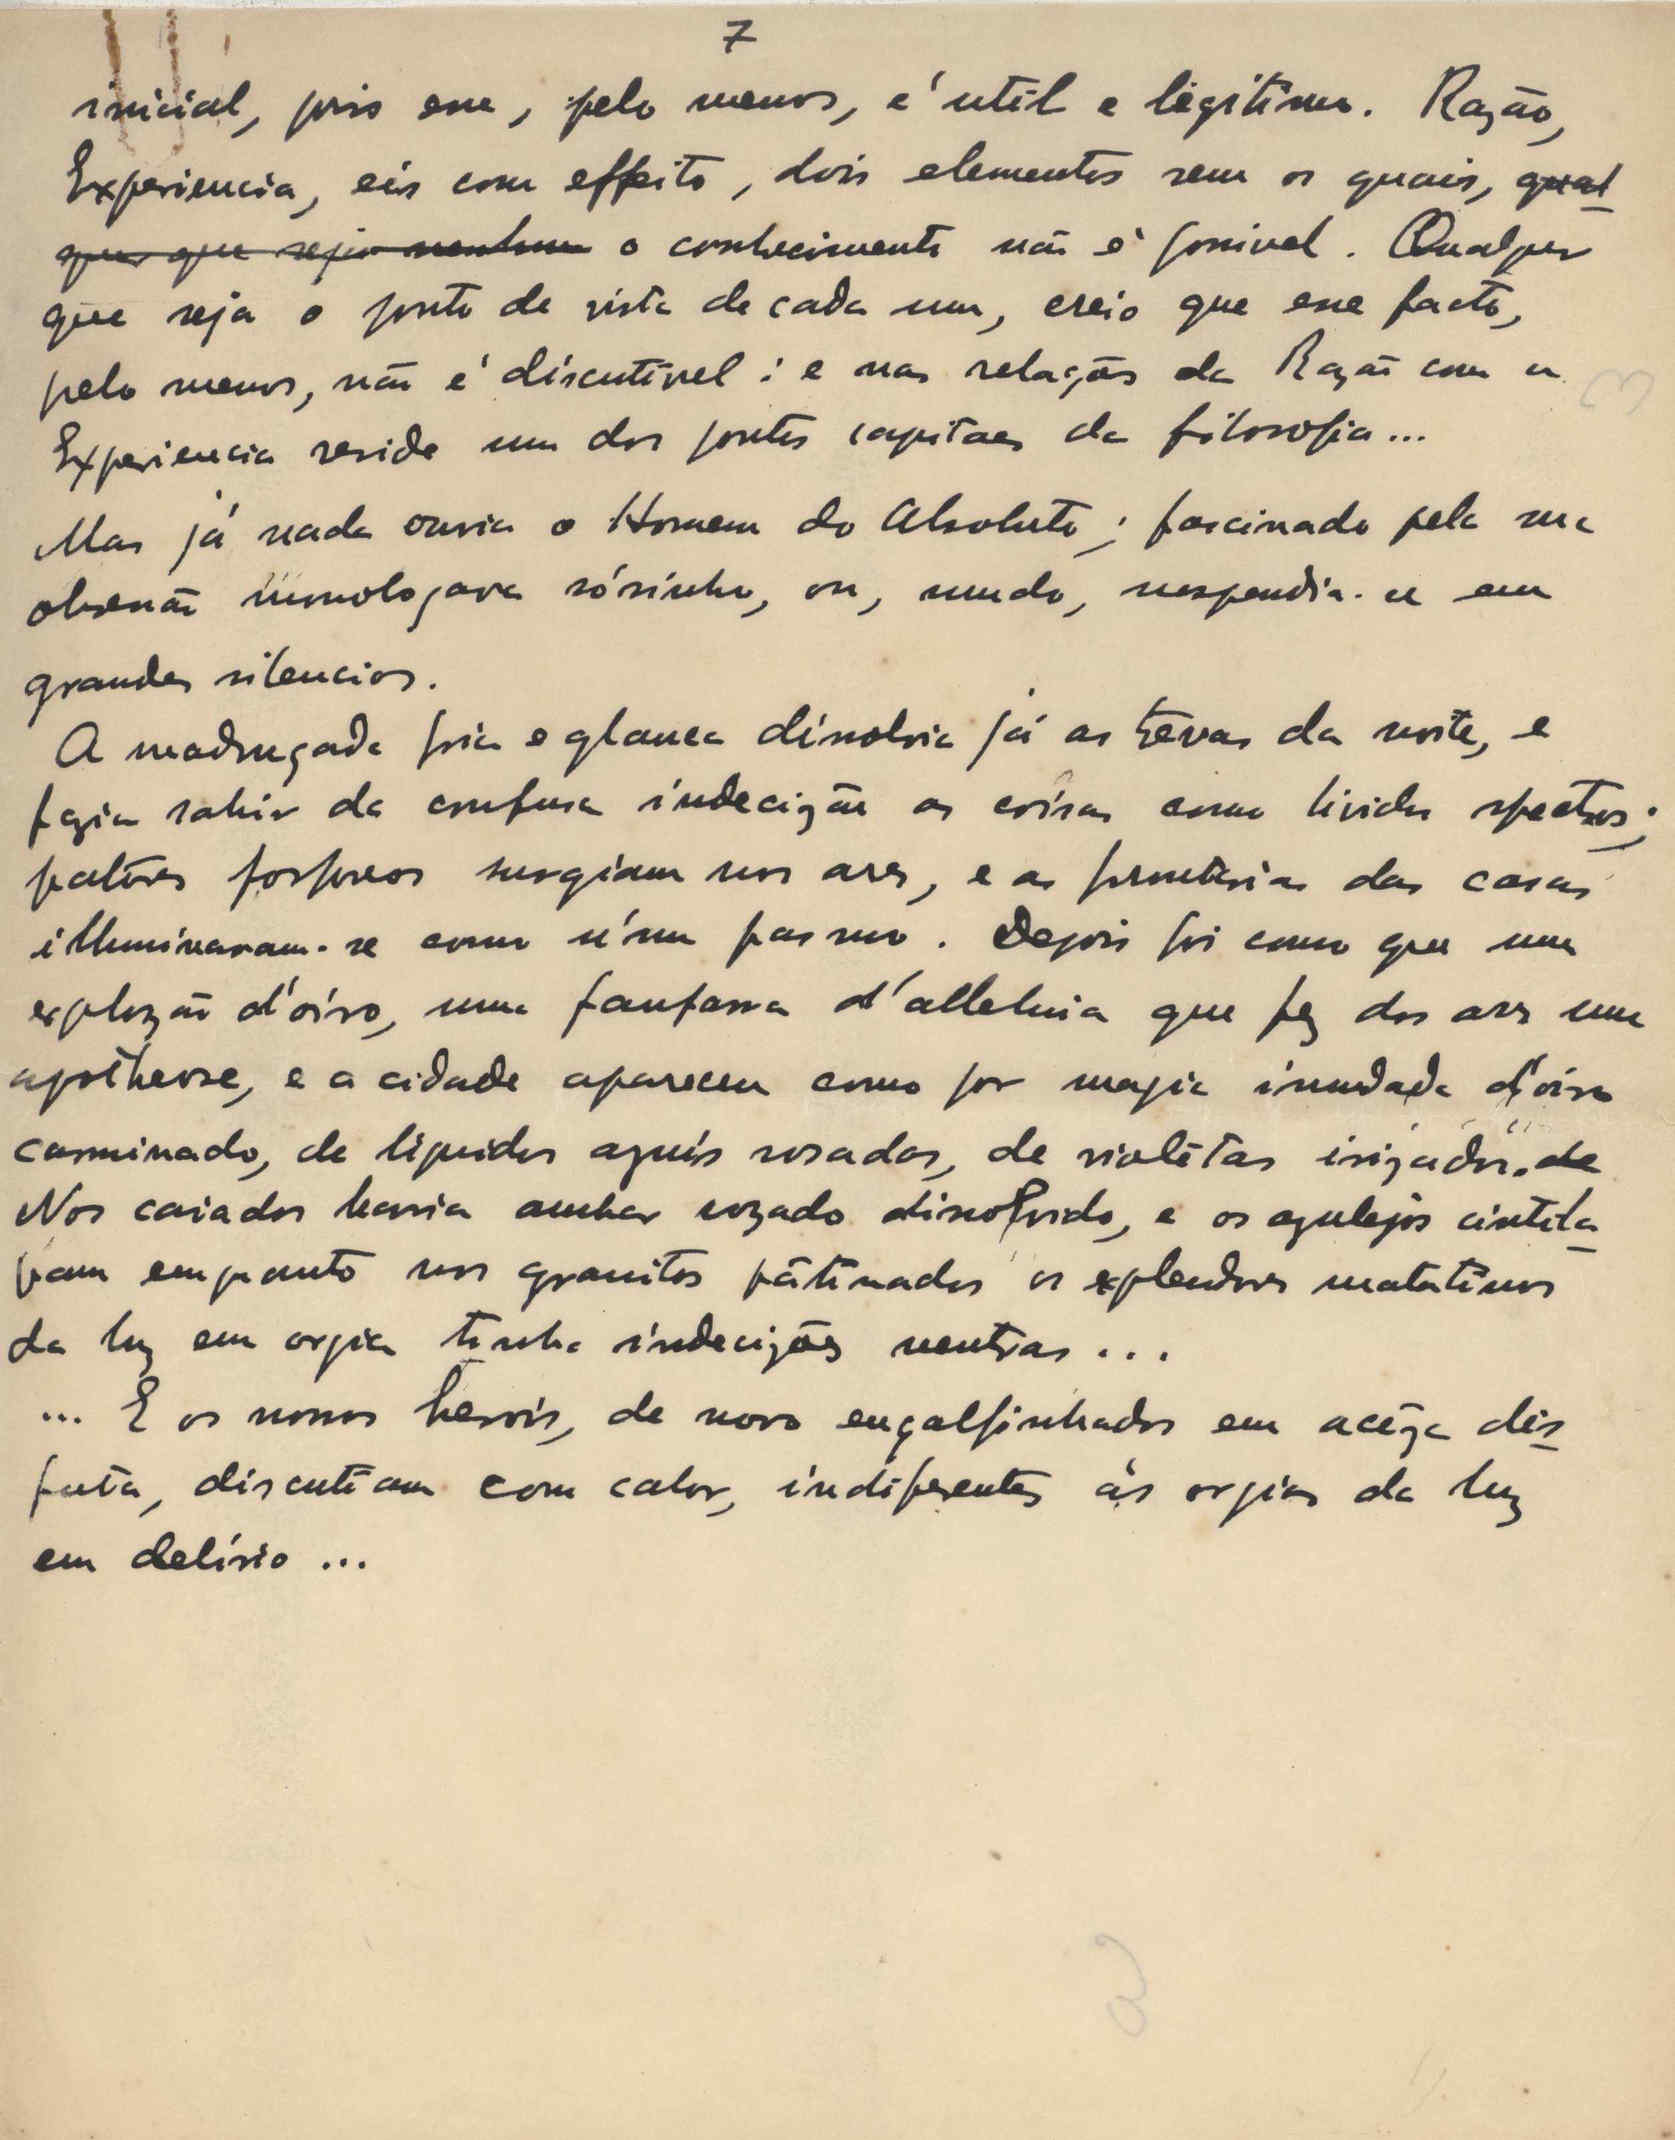 7
inicial, pois esse, pelo menos, é util e legitimo. Razão,
Experiencia, eis com effeito, dois elementos sem os quais, qual-
quer que seja nenhum o conhecimento não é possivel. Qualquer
que seja o ponto de vista de cada um, creio que esse facto,
pelo menos, não é discutivel: e nas relações da Razão com a
Experiencia reside um dos pontos capitaes da filosofia...
Mas já nada ouvia o Homem do Absoluto; fascinado pela sua
obsessão monologava sósinho, ou, mudo, suspendia-se em
grandes silencios.
A madrugada fria e glauca dissolvia já as trevas da noite, e
fazia sahir da confusa indecizão as coisas como lividos spectros;
palôres fosforeos surgiam nos ares, e as frontarias das casas
illuminavam-se como n'um pasmo. Depois foi como que uma
explozão d'oiro, uma fanfarra d'alleluia que fez dos ares uma
apotheose, e a cidade apareceu como por magia inundada d'oiro
carminado, de liquidos azuis rosados, de violêtas irizados. de
Nos caiados havia ambar rozado dissolvido, e os azulejos cintila-
vam emquanto nos granitos pátinados os explendores matutinos
da luz em orgia tinha indecizões neutras...
... E os nossos herois, de novo engalfinhados em acêza dis-
puta, discutiam com calor, indiferentes ás orgias da luz
em delirio...